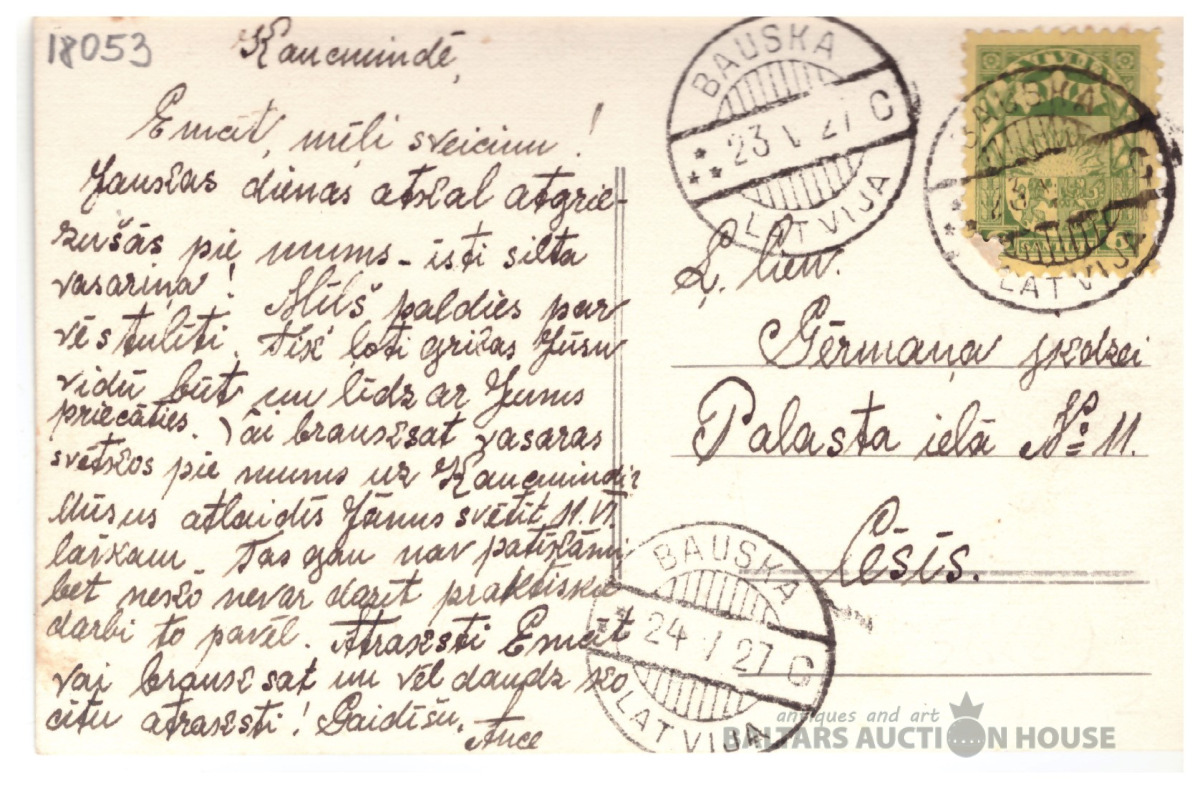 18053
Kaucmindē,
Emāt, mīļi sveicinu!
Jaukas dienas atkal atgrie-
zušās pie mums - īsti silta
vasariņa! Mīļš paldies par
vēstulīti. Tik ļoti gribas Jūsu
vidū būt un līdz ar Jums
priecāties. Vai brauksat vasaras
svētkos pie mums uz Kaucmindi?
Mūsus atlaidīs Jāņus svētīt 11.VI
laikam. Tas gan nav patīkami
bet neko nevar darīt praktiskie
darbi to pavēl. Atraksti Emāt
vai brauksat un vēl daudz ko
citu atraksti! Gaidīšu.
Ance
BAUSKA
23 V 27 C
LATVIJA
BAUSKA
LATVIJA
LATVIJA
6
SANTIMI
6
Ļ. cien.
Gērmaņa jkdzei
Palasta ielā № 11.
Cēsīs.
BAUSKA
24 V 27 C
LATVIJA
antiques and art
BALTARS AUCTION HOUSE